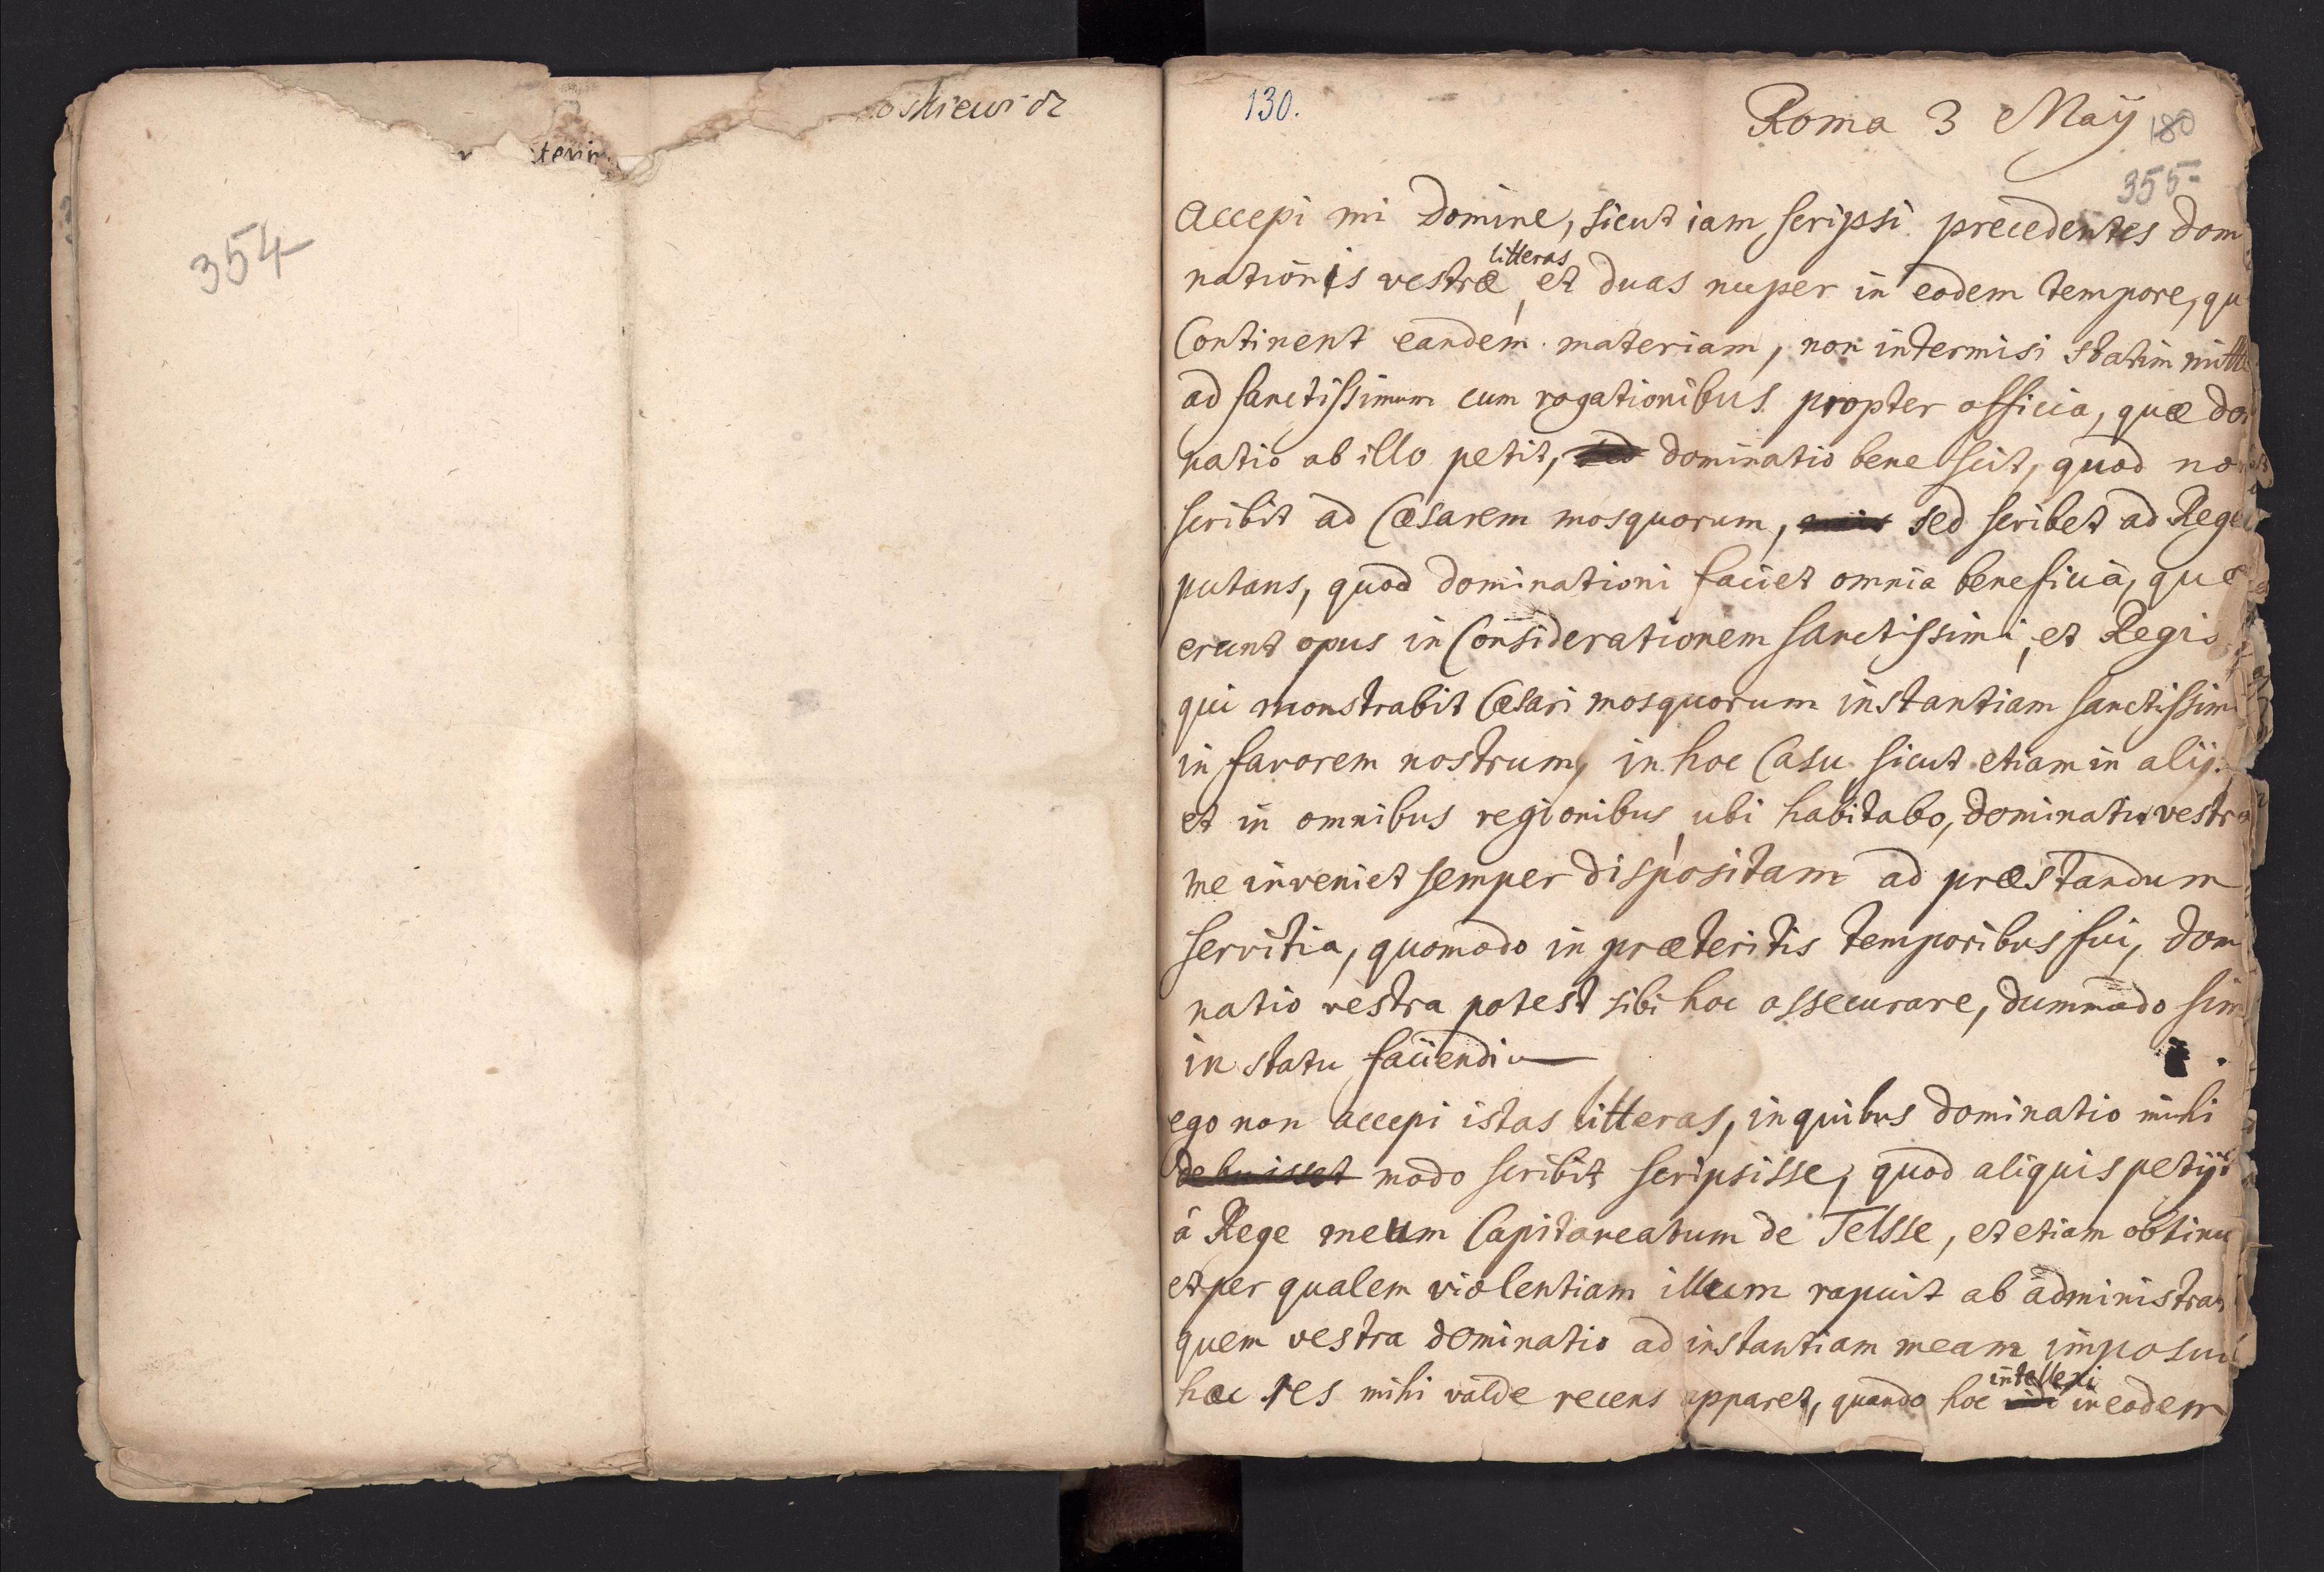 oskiewicz
354
130.
Roma 3 Maÿ
180
355
accepi mi Domine, sicut iam scripsi precedentes Dom
nationis vestræ litteras, et duas nuper in eodem tempore, qu
Continent eandem materiam, non intermisi statim mitte
ad sanctissimum cum rogationibus propter officia, quæ do
natio ab illo petit, dominatio bene scit, quod no
scribit ad Cæsarem mosquorum, sed scribet ad Rege
putans, quod dominationi faciet omnia beneficia, quæ
erunt opus in Considerationem sanctissimi, et Regis
qui monstrabit Cæsari mosquorum instantiam sanctissim
in favorem nostrum, in hoc Casu sicut etiam in alij
et in omnibus regionibus, ubi habitabo, dominatio vestra
me inveniet semper dispositam ad præstandum
servitia, quomodo in præteritis temporibus fui, Dom
natio vestra potest sibi hoc assecurare, dummodo sim
in statu faciendi
ego non accepi istas litteras, in quibus dominatio mihi
debuisset modo scribit scripsisse, quod aliquis petijt
à Rege meum Capitaneatum de Telsse, et etiam obtinu
et per qualem violentiam illum rapuit ab administrat
quem vestra dominatio ad instantiam meam imposui
hæc res mihi valde recens apparet, quando hoc intellexi in eodem